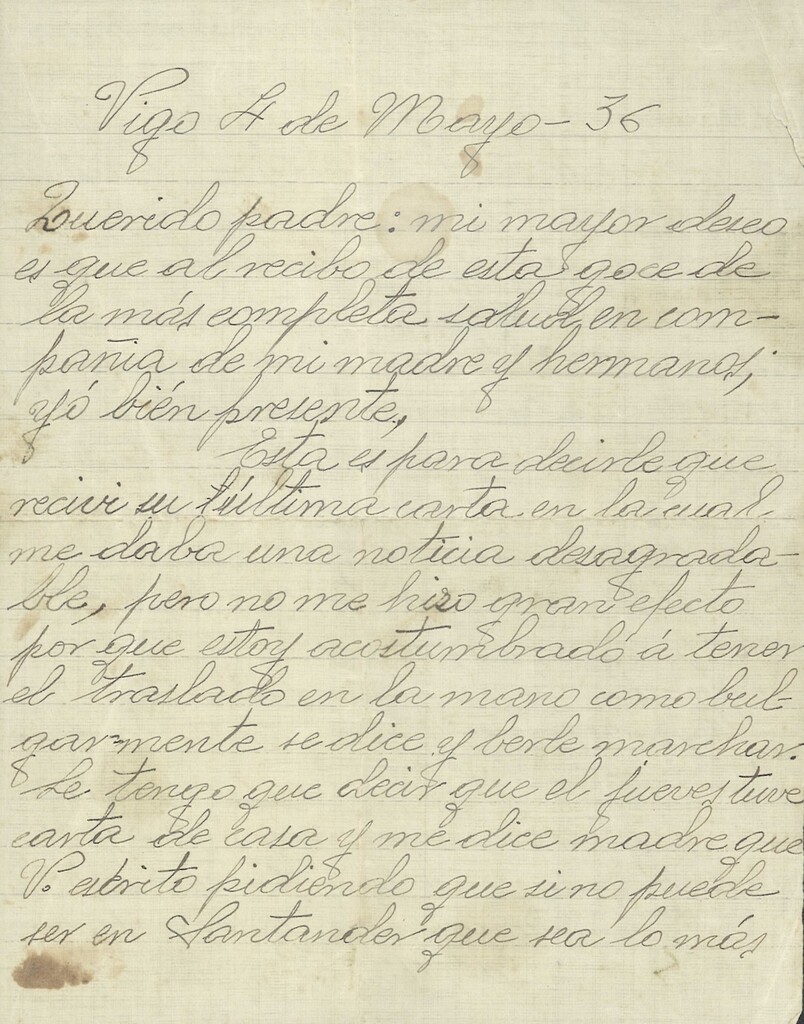 Vigo 4 de Mayo - 36
Querido padre: mi mayor deseo
es que al recibo de esta goce de
la más completa salud, en com-
pañia de mi madre y hermanos;
yó bién presente,
Esta es para decirle que
recivi su última carta en la cual
me daba una noticia desagrada-
ble, pero no me hizo gran efecto
por que estoy acostumbrado á tener
el traslado en la mano como bul-
garmente se dice y berle marchar.
Le tengo que decir que el jueves tuve
carta de casa y me dice madre que
V. escrito pidiendo que si no puede
ser en Santander que sea lo más